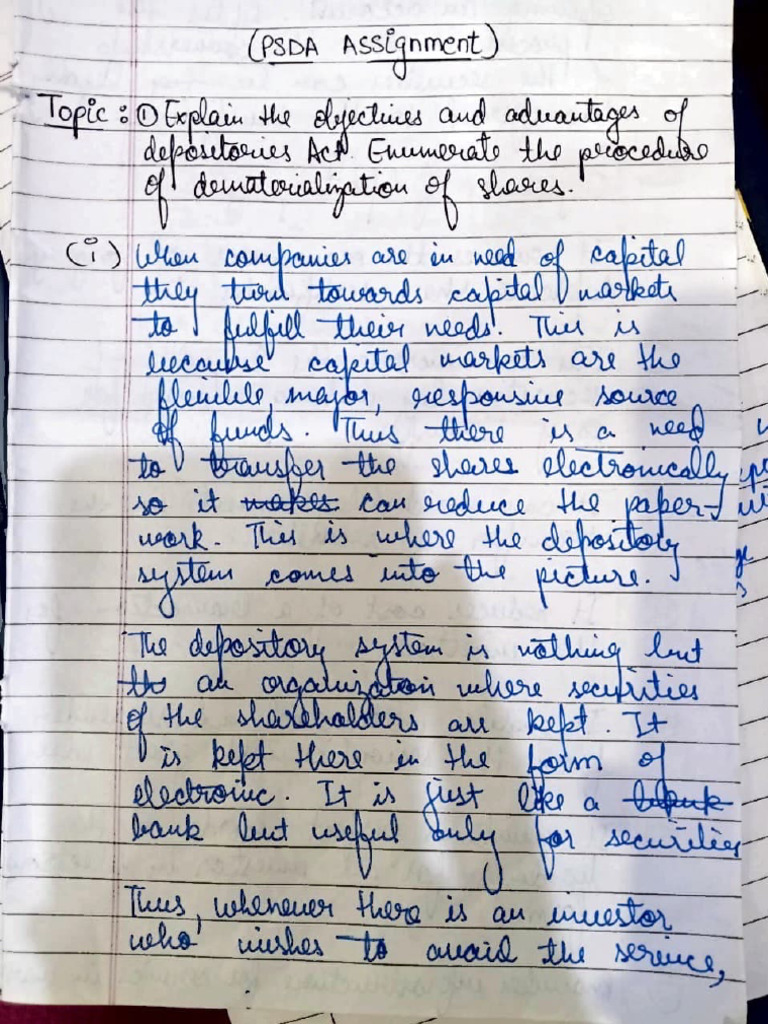 (PSDA Assignment)
Topic: ① Explain the objectives and advantages of
depositories Act. Enumerate the procedure
of dematerialization of shares.
(i) When companies are in need of capital
they turn towards capital markets
to fulfill their needs. This is
because capital markets are the
flexible, major, responsive source
of funds. Thus there is a need
to transfer the shares electronically
so it makes can reduce the paper-
work. This is where the depository
system comes into the picture.
The depository system is nothing but
th an organization where securities
of the shareholders are kept. It
is kept there in the form of
electronic. It is just like a
bank but useful only for securities
Thus, whenever there is an investor
who wishes to avail the service,